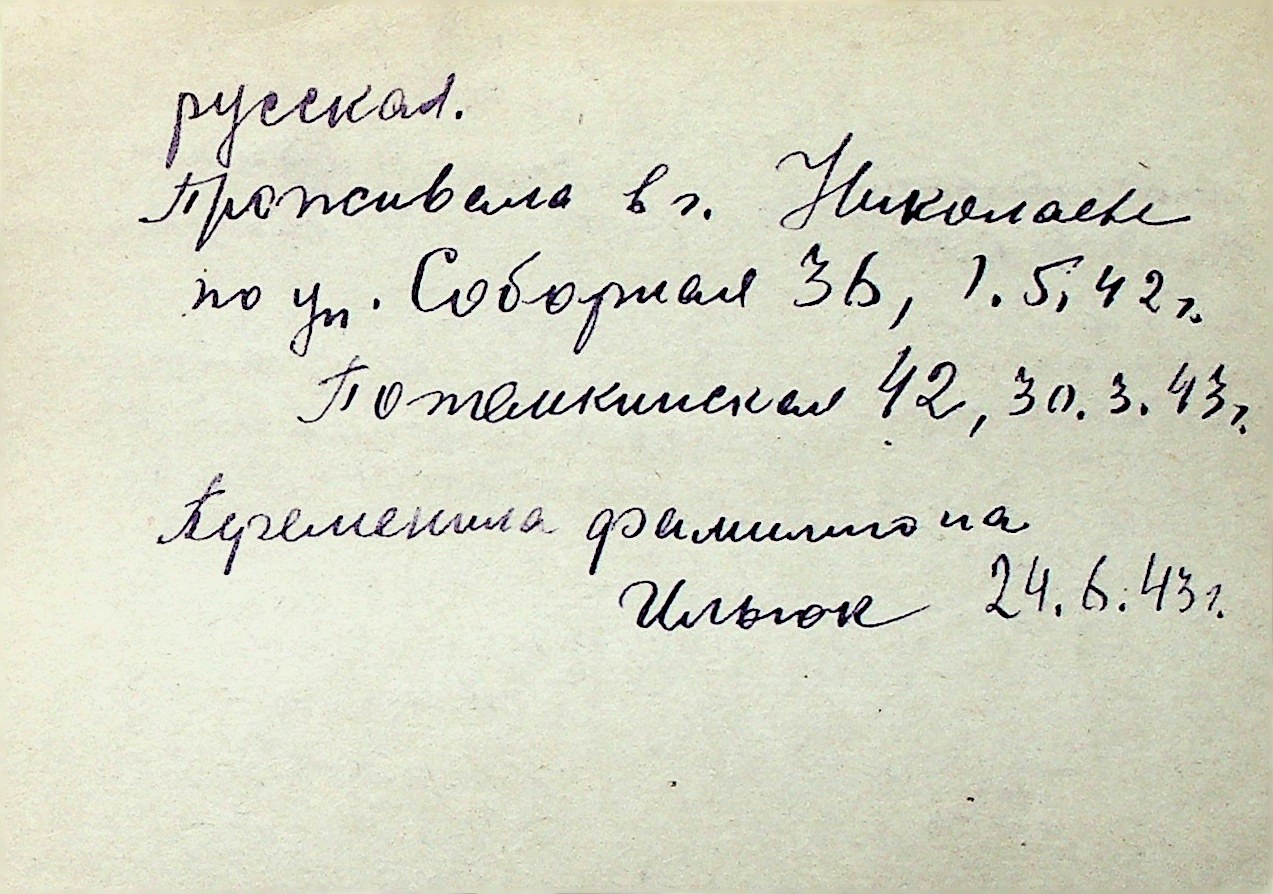 русская.
Проживала в г. Николаеве
по ул. Соборная 36, 1.5.42г.
Потемкинская 42, 30.3.43г.
Переменила фамилию на
Ильюк 24.6.43г.